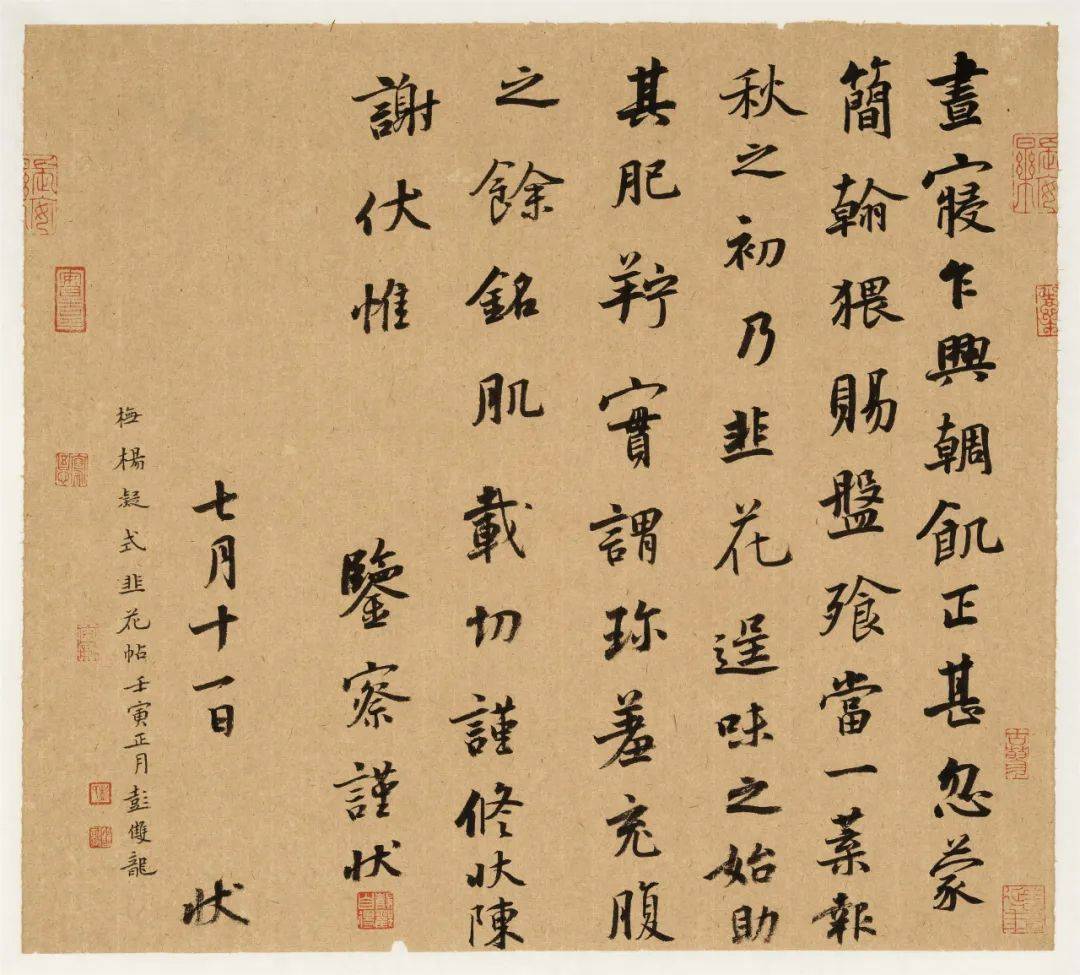 晝寢乍興輖飢正甚忽蒙
簡翰猥賜盤飱當一葉報
秋之初乃韭花逞味之始助
其肥羜實謂珍羞充腹
之餘銘肌載切謹修狀陳
謝伏惟
鑒察謹狀
七月十一日
狀
楊凝式韭花帖壬寅正月彭雙龍